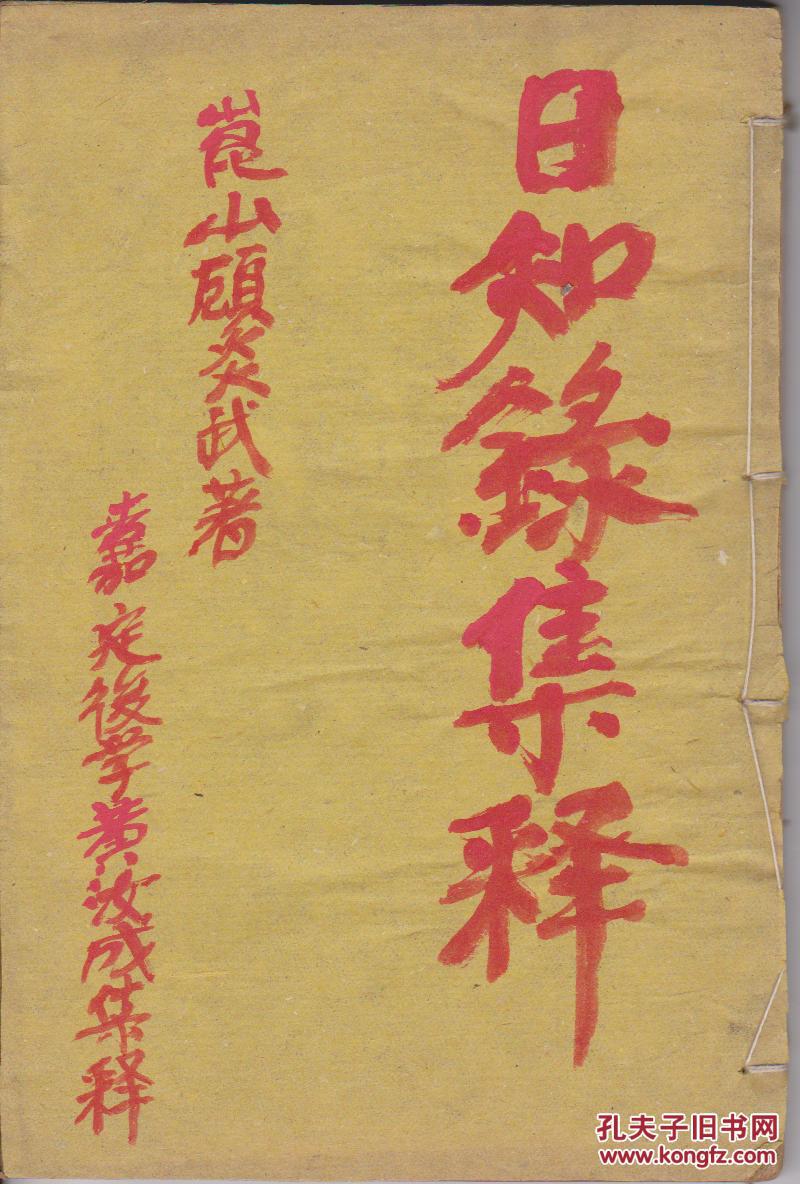 日知錄集释
崑山顾炎武著
嘉定後学黄汝成集释
孔夫子旧书网
www.kongfz.com